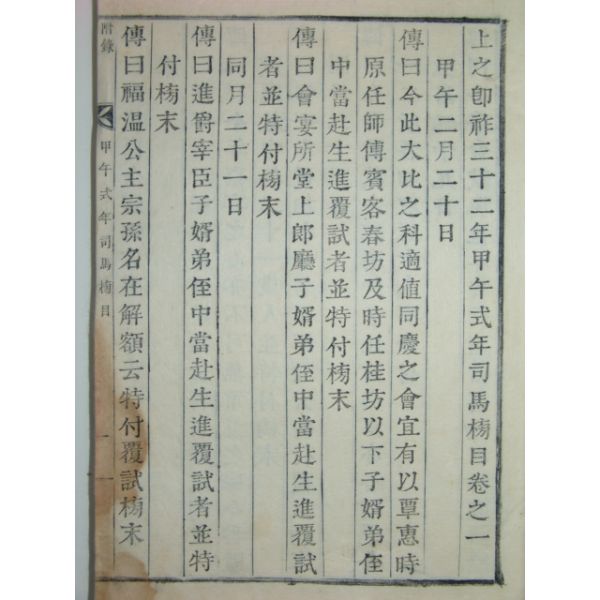 上之卽祚三十二年甲午式年司馬榜目卷之一
甲午二月二十日
傳曰今此大比之科適值同慶之會宜有以覃惠時
原任師傅賓客春坊及時任桂坊以下子婿弟侄
中當赴生進覆試者並特付榜末
傳曰會宴所堂上郎廳子婿弟侄中當赴生進覆試
者並特付榜末
同月二十一日
傳曰進爵宰臣子婿弟侄中當赴生進覆試者並特
付榜末
傳曰福溫公主宗孫名在解額云特付覆試榜末
附錄
甲午式年司馬榜目
一